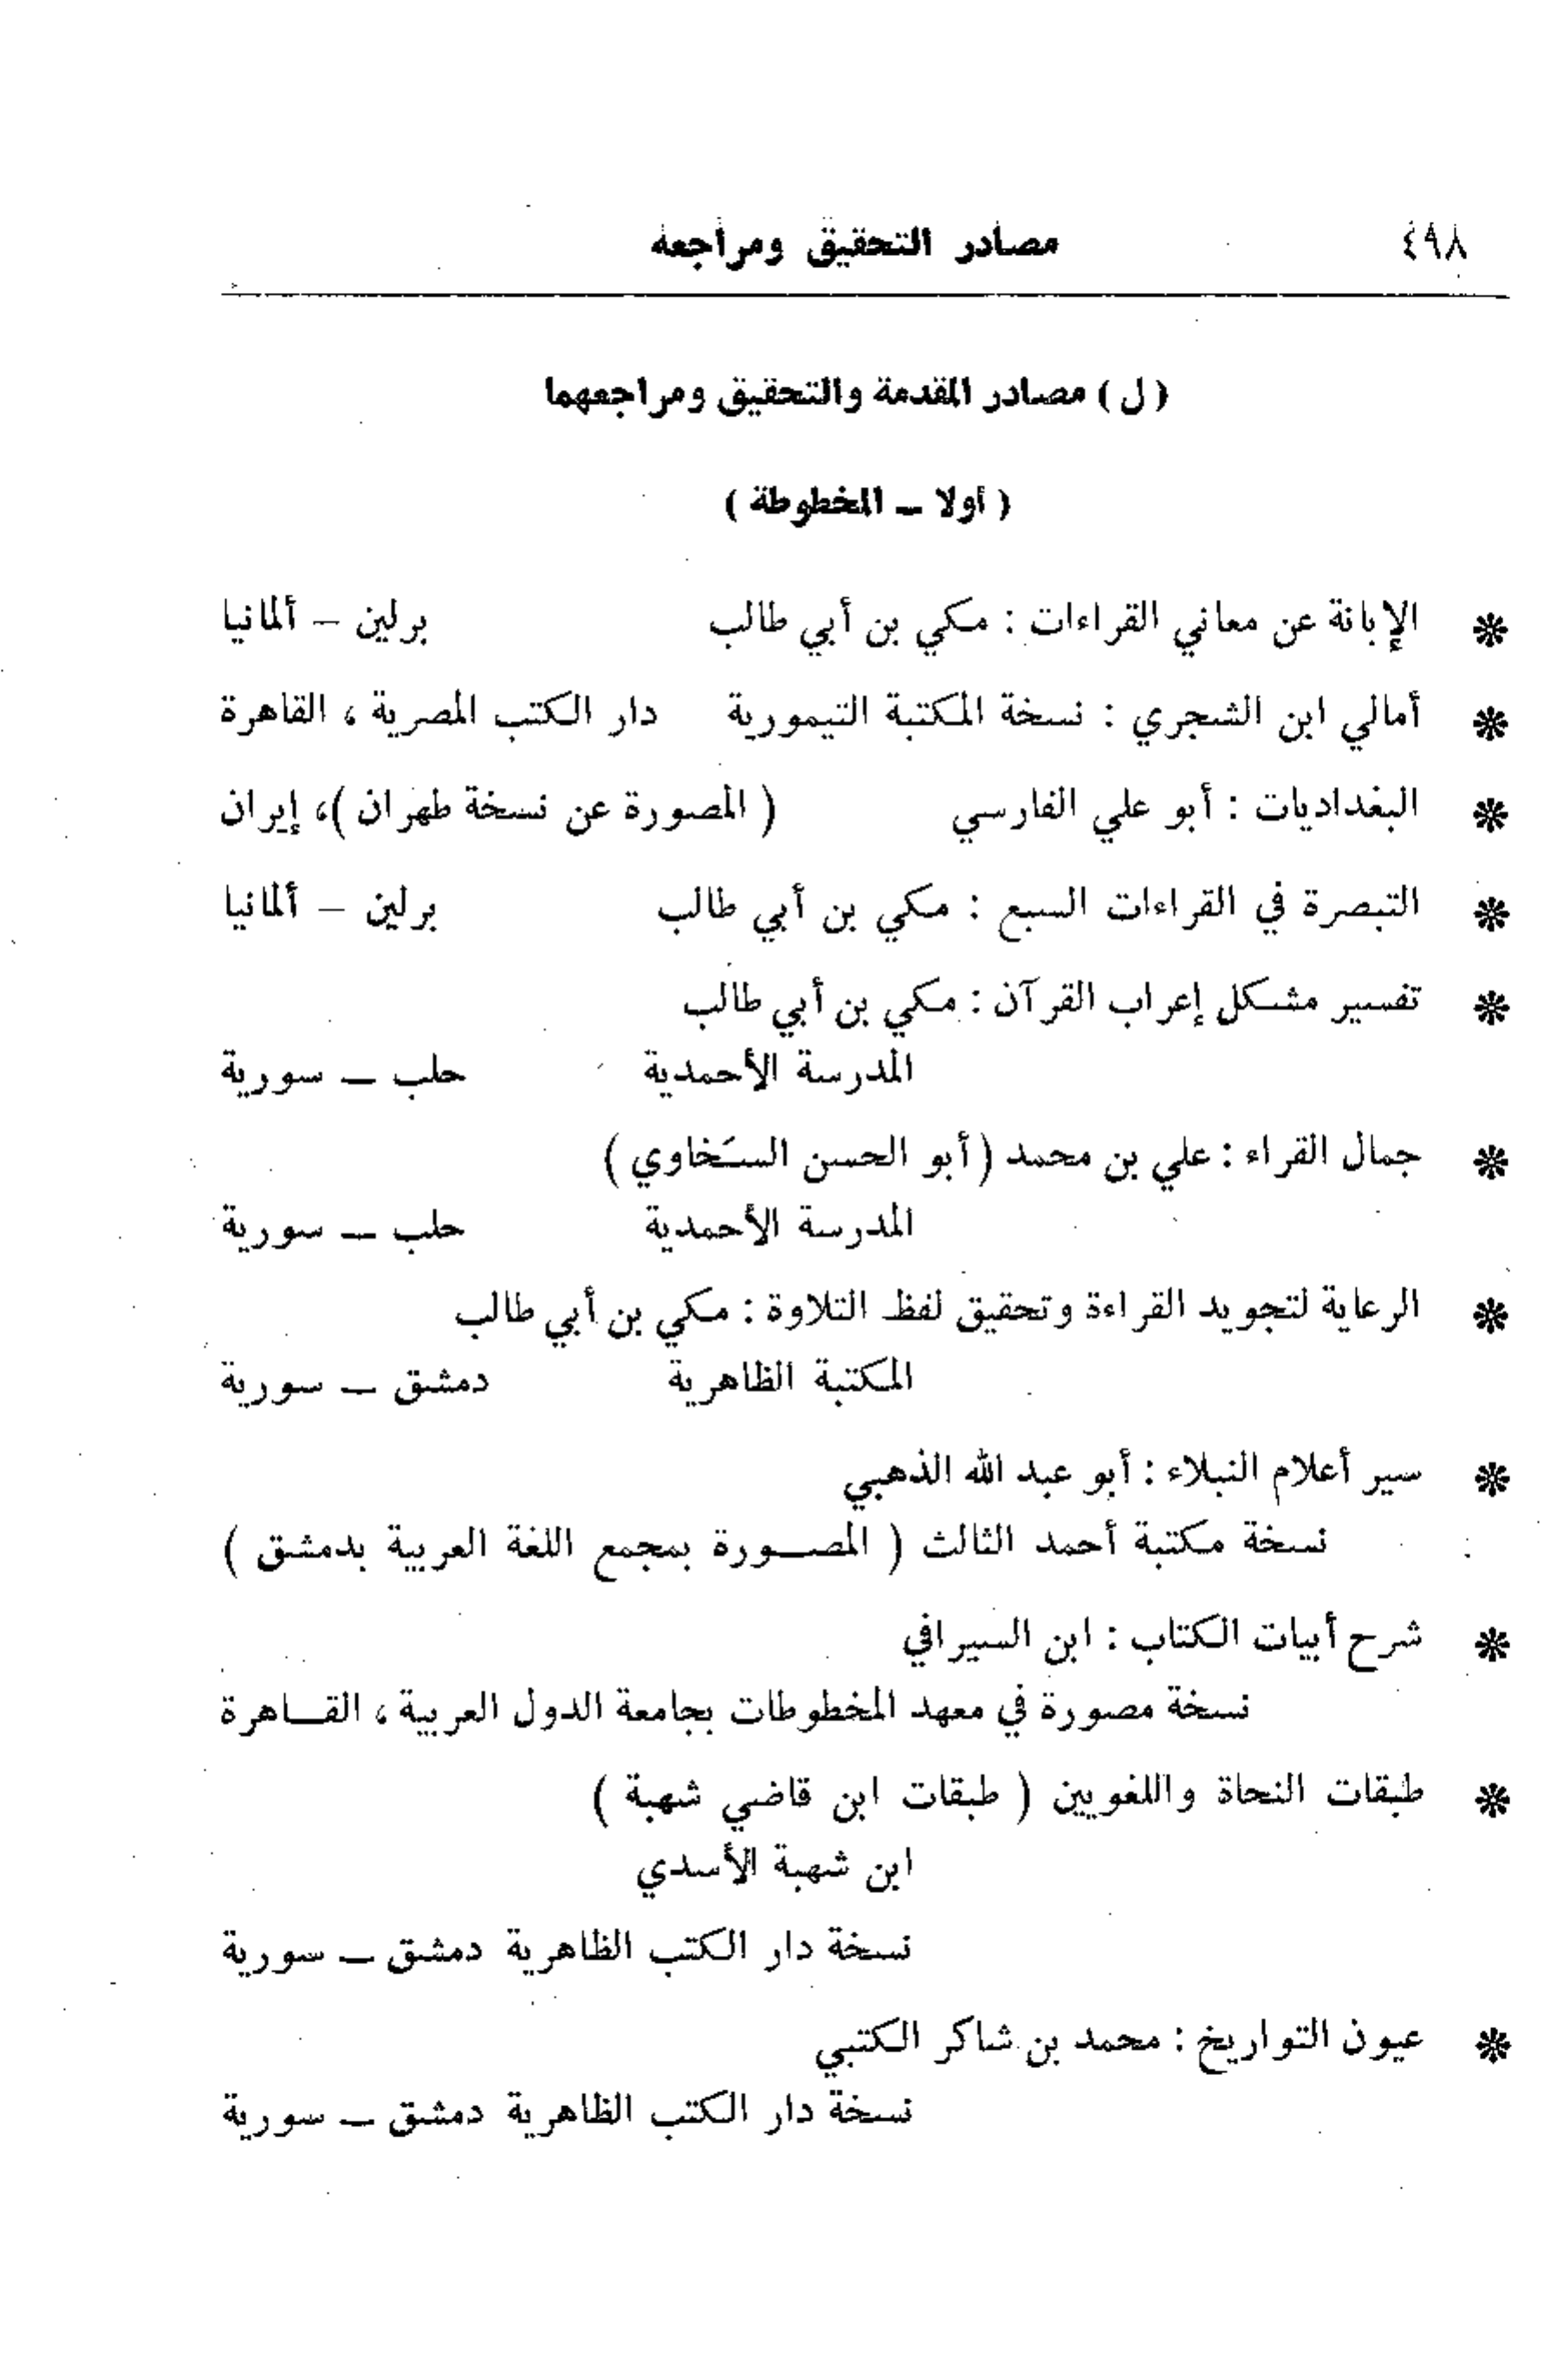 ٤٩٨ مصادر التحقيق ومراجعه
( ل ) مصادر المقدمة والتحقيق ومراجعهما
( أولا ــ المخطوطة )
* الإبانة عن معاني القراءات : مكي بن أبي طالب برلين – ألمانيا
* أمالي ابن الشجري : نسخة المكتبة التيمورية دار الكتب المصرية ، القاهرة
* البغداديات : أبو علي الفارسي ( المصورة عن نسخة طهران )، إيران
* التبصرة في القراءات السبع : مكي بن أبي طالب برلين – ألمانيا
* تفسير مشكل إعراب القرآن : مكي بن أبي طالب
المدرسة الأحمدية حلب ــ سورية
* جمال القراء : علي بن محمد ( أبو الحسن السَخاوي )
المدرسة الأحمدية حلب ــ سورية
* الرعاية لتجويد القراءة وتحقيق لفظ التلاوة : مكي بن أبي طالب
المكتبة الظاهرية دمشق ــ سورية
* سير أعلام النبلاء : أبو عبد الله الذهبي
نسخة مكتبة أحمد الثالث ( المصــورة بمجمع اللغة العربية بدمشق )
* شرح أبيات الكتاب : ابن السيرافي
نسخة مصورة في معهد المخطوطات بجامعة الدول العربية ، القــاهرة
* طبقات النحاة واللغويين ( طبقات ابن قاضي شهبة )
ابن شهبة الأسدي
نسخة دار الكتب الظاهرية دمشق ــ سورية
* عيون التواريخ : محمد بن شاكر الكتبي
نسخة دار الكتب الظاهرية دمشق ــ سورية